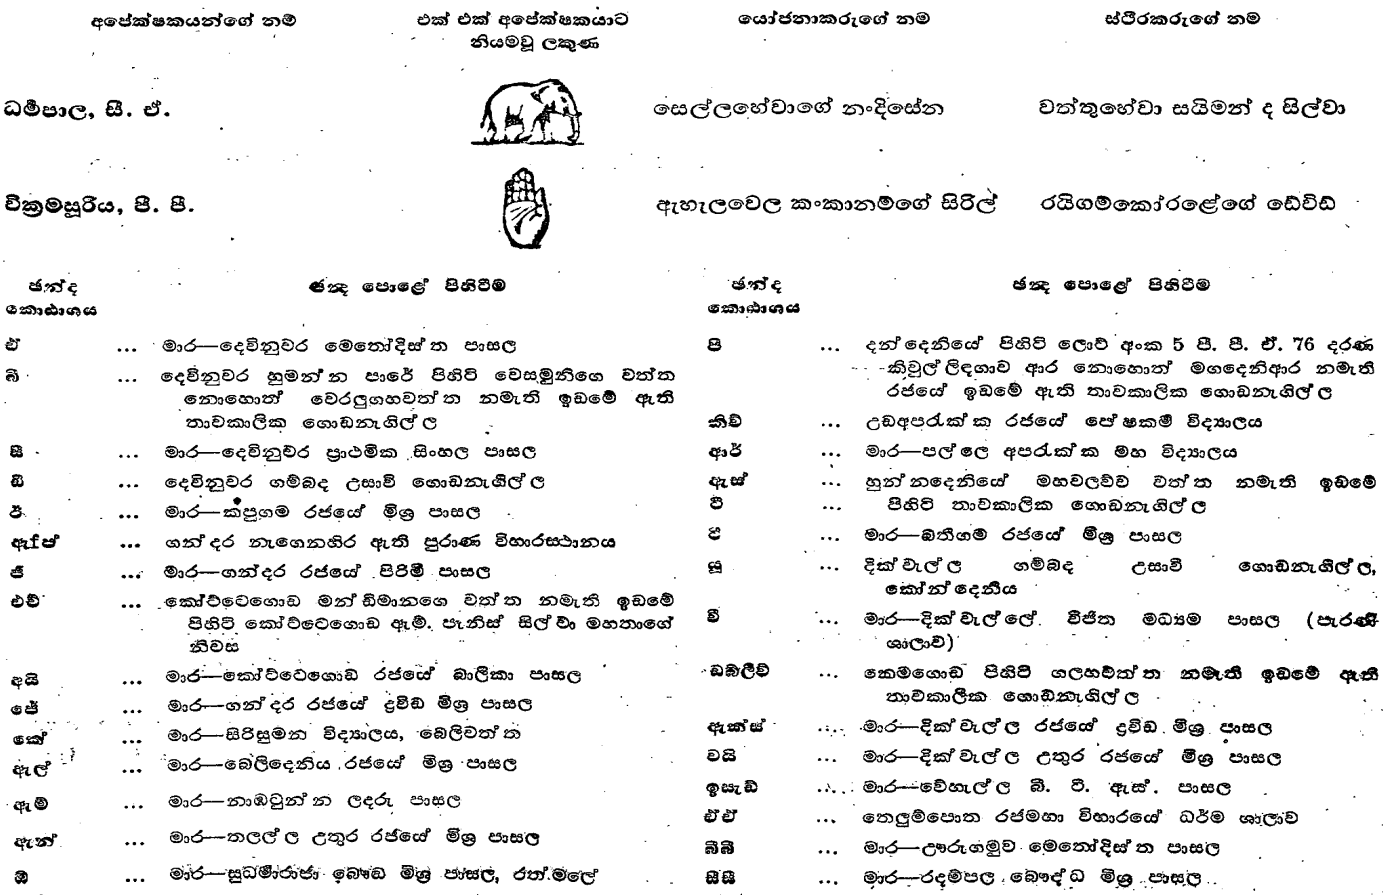 අපේක්ෂකයන්ගේ නම
එක් එක් අපේක්ෂකයාට
නියමවූ ලකුණ
යෝජනාකරුගේ නම
ස්ථිරකරුගේ නම
ධර්මපාල, සී. ඒ.
සෙල්ලහේවාගේ නංදිසේන
වත්තුහේවා සයිමන් ද සිල්වා
වික්‍රමසූරිය, පී. පී.
ඇහැලවෙල කංකානම්ගේ සිරිල්
රයිගම්කෝරළේගේ ඩේවිඩ්
ඡන්ද
කොඨාශය
ඡන්ද පොළේ පිහිටීම
ඒ ... මාර—දෙවිනුවර මෙතෝදිස්ත පාසල
බී ... දෙවිනුවර හුමන්න පාරේ පිහිටි වෙසමුනිගෙ වත්ත
නොහොත් වෙරලුගහවත්ත නමැති ඉඩමේ ඇති
තාවකාලික ගොඩනැගිල්ල
සී ... මාර—දෙවිනුවර ප්‍රාථමික සිංහල පාසල
ඩී ... දෙවිනුවර ගම්බද උසාවි ගොඩනැගිල්ල
ඊ ... මාර—කපුගම රජයේ මිශ්‍ර පාසල
ඇf ප් ... ගන්දර නැගෙනහිර ඇති පුරාණ විහාරස්ථානය
ජී ... මාර—ගන්දර රජයේ පිරිමි පාසල
එච් ... කෝට්ටෙගොඩ මන්ඩිමානගෙ වත්ත නමැති ඉඩමේ
පිහිටි කෝට්ටෙගොඩ ඇම්. පැනිස් සිල්වා මහතාගේ
නිවස
අයි ... මාර—කෝට්ටෙගොඩ රජයේ බාලිකා පාසල
ජේ ... මාර—ගන්දර රජයේ ද්‍රවිඩ මිශ්‍ර පාසල
කේ ... මාර—සිරිසුමන විද්‍යාලය, බෙලිවත්ත
ඇල් ... මාර—බෙලිදෙනිය රජයේ මිශ්‍ර පාසල
ඇම් ... මාර—නාඹටුන්න ලදරු පාසල
ඇන් ... මාර—තලල්ල උතුර රජයේ මිශ්‍ර පාසල
ඕ ... මාර—සුධර්මාරාජා බෞද්ධ මිශ්‍ර පාසල, රත්මලේ
ඡන්ද
කොඨාශය
ඡන්ද පොළේ පිහිටීම
පී ... දන්දෙනියේ පිහිටි ලොට් අංක 5 පී. පී. ඒ. 76 දරණ
කිවුල්ලිඳගාව ආර නොහොත් මගදෙනිආර නමැති
රජයේ ඉඩමේ ඇති තාවකාලික ගොඩනැගිල්ල
කිව් ... උඩඅපරැක්ක රජයේ පේෂකම් විද්‍යාලය
ආර් ... මාර—පල්ලෙ අපරැක්ක මහ විද්‍යාලය
ඇස් ... හුන්නදෙනියේ මහවලව්ව වත්ත නමැති ඉඩමේ
ටී ... පිහිටි තාවකාලික ගොඩනැගිල්ල
ටී ... මාර—බතීගම රජයේ මිශ්‍ර පාසල
යූ ... දික්වැල්ල ගම්බද උසාවි ගොඩනැගිල්ල,
කෝන්දෙනිය
වී ... මාර—දික්වැල්ලේ විජිත මධ්‍යම පාසල (පැරණි
ශාලාව)
ඩබ්ලිව් ... කෙමගොඩ පිහිටි ගලහවත්ත නමැති ඉඩමේ ඇති
තාවකාලික ගොඩනැගිල්ල
ඇක්ස් ... මාර—දික්වැල්ල රජයේ ද්‍රවිඩ මිශ්‍ර පාසල
වයි ... මාර—දික්වැල්ල උතුර රජයේ මිශ්‍ර පාසල
ඉසැඩ් ... මාර—වේහැල්ල බී. ටී. ඇස්. පාසල
ඒඒ ... තෙලුම්පොත රජමහා විහාරයේ ධර්ම ශාලාව
බීබී ... මාර—ඌරුගමුව මෙතෝදිස්ත පාසල
සීසී ... මාර—රදම්පල බෞද්ධ මිශ්‍ර පාසල